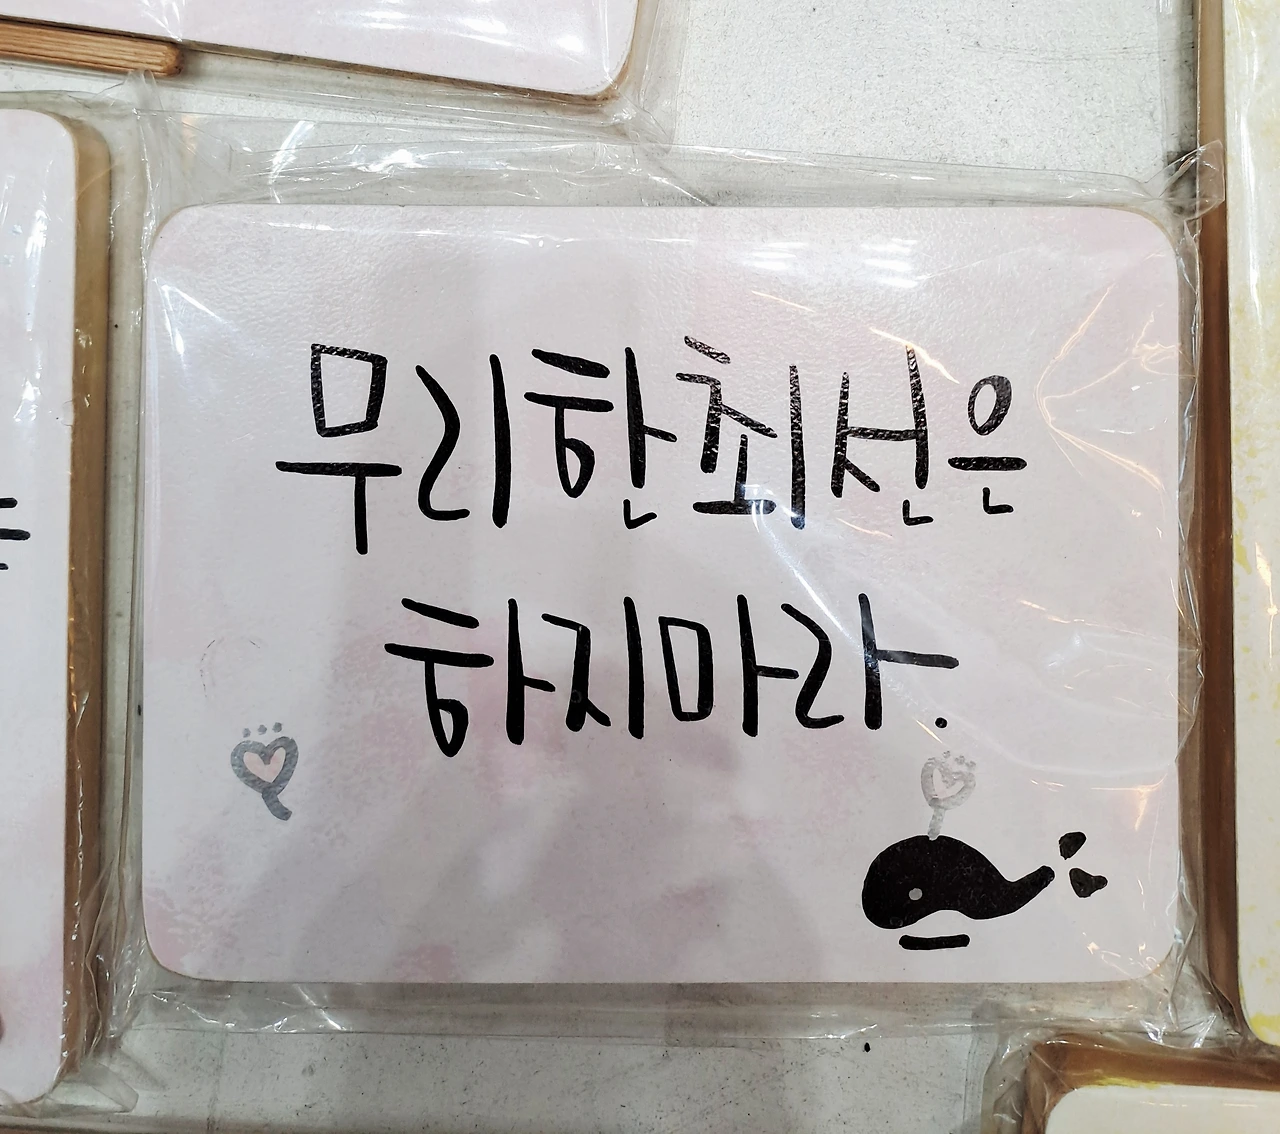 무리한 최선은
하지마라.